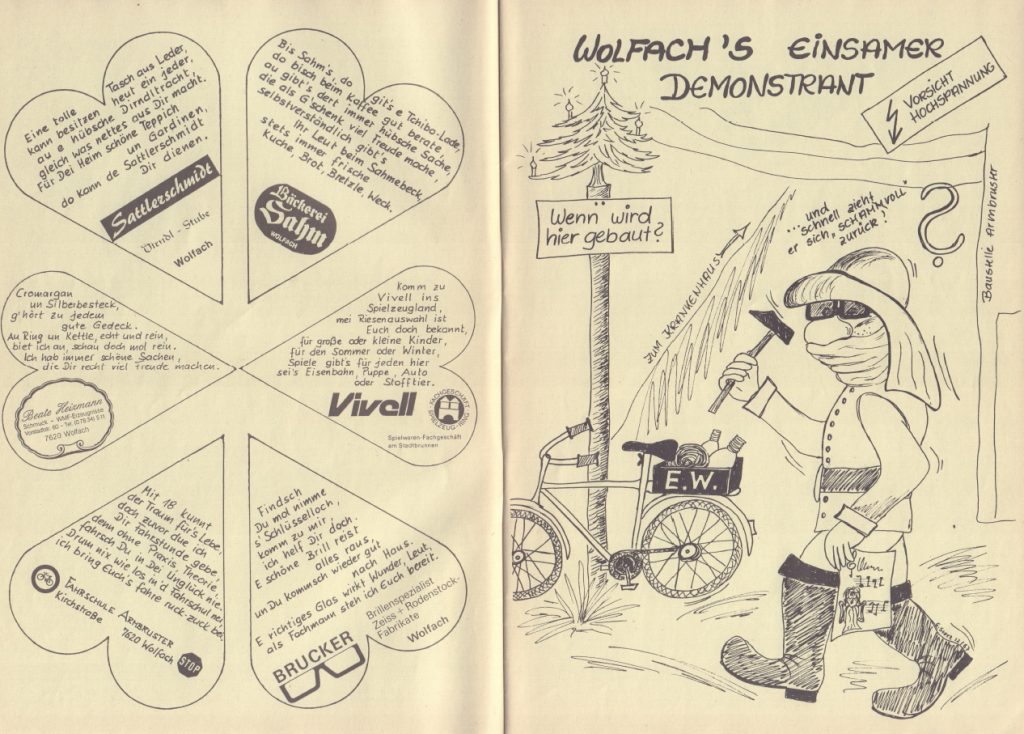 Eine tolle Tasch aus Leder,
kann besitzen heut ein jeder,
au e hübsche Dirndltracht,
gleich was nettes aus Dir macht.
Für Dei Heim schöne Teppich
un Gardinen,
do kann de Sattlerschmidt
Dir dienen.
Sattlerschmidt
Dirndl-Stube
Wolfach
Bis Sahm's, do git's e Tchibo-Lade,
do bisch beim Kaffee gut berate,
au gibt's dert immer hübsche Sache,
die als G'schenk viel Freude mache,
selbstverständlich gibt's
Ihr Leut beim Sahmebeck,
stets immer frische
Kuche, Brot, Bretzle, Weck.
Bäckerei
Sahm
WOLFACH
Cromargan
un Silberbesteck,
g'hört zu jedem
gute Gedeck.
Au Ring un Kettle, echt und rein,
biet ich an, schau doch mol rein.
Ich hab immer schöne Sachen,
die Dir recht viel Freude machen.
Beate Heizmann
Schmuck - WMF-Erzeugnisse
Vorstadtstr. 60 - Tel. (0 78 34) 5 11
7620 Wolfach
Komm zu
Vivell ins
Spielzeugland,
mei Riesenauswahl ist
Euch doch bekannt,
für große oder kleine Kinder,
für den Sommer oder Winter,
Spiele gibt's für jeden hier
sei's Eisenbahn, Puppe, Auto
oder Stofftier.
Vivell
FACHGESCHÄFT
SPIELZEUG-RING
Spielwaren-Fachgeschäft
am Stadtbrunnen
Mit 18 kunnt
der Traum für's Lebe,
doch zuvor due ich
Dir Fahrstunde gebe,
denn ohne Praxis, Theorie,
fahrsch Du in Dei Unglück nie.
Drum nix wie los in d'Fahrschul nei
ich bring Euch's fahre ruck-zuck bei.
FAHRSCHULE ARMBRUSTER
Kirchstraße 7620 Wolfach
STOP
Findsch
Du mol nimme
's Schlüsselloch,
komm zu mir,
ich helf Dir doch.
E schöne Brill reist
alles raus,
un Du kommsch wieder gut
nach Haus.
E richtiges Glas wirkt Wunder, Leut,
als Fachmann steh ich Euch bereit.
BRUCKER
Brillenspezialist
Zeiss + Rodenstock-
Fabrikate
Wolfach
WOLFACH'S EINSAMER
DEMONSTRANT
VORSICHT
HOCHSPANNUNG
Wenn wird
hier gebaut?
ZUM KRANKENHAUS
und
...schnell zieht
er sich "SCHAMMVOLL"
zurück!
?
Baustelle Armbruster
E.W.